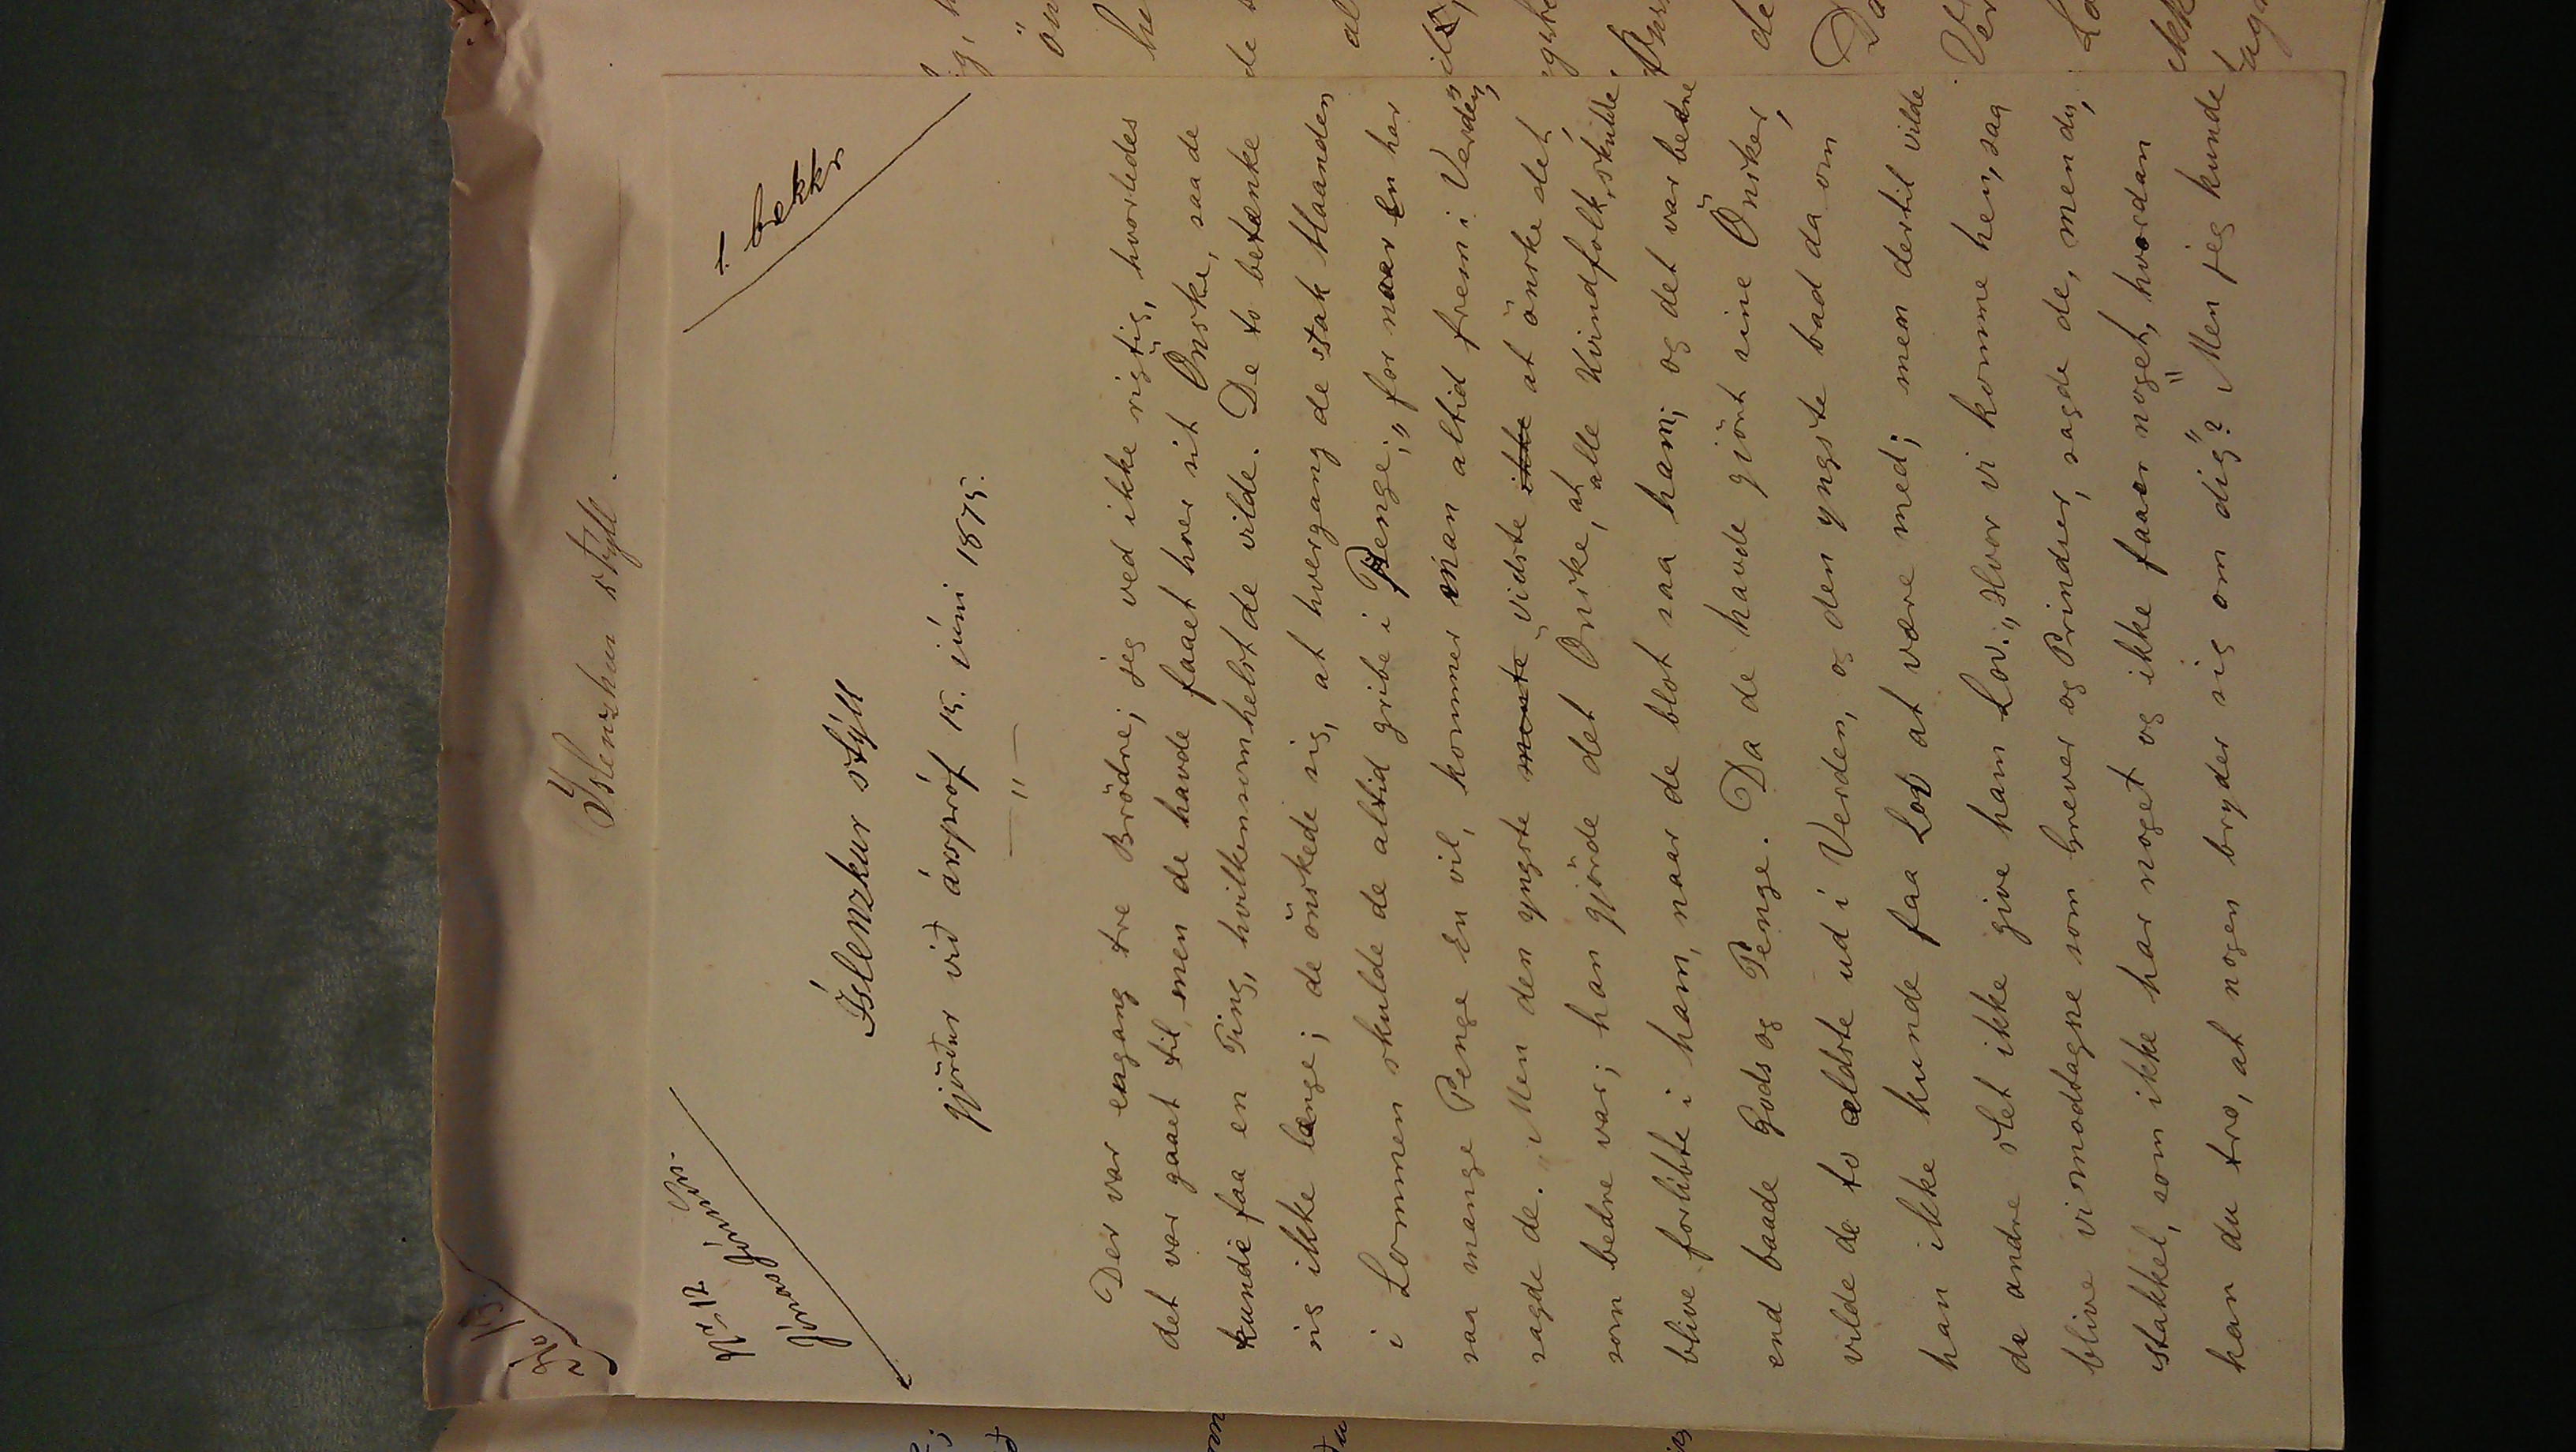 No 13.
Íslenzkur stýll.
No 12.
Jónas Jónsson
i bekkr
Íslenzkur stýll
gjörður við árspróf 15. júni 1875.
Der var engang tre Brödre; jeg ved ikke rigtig, hvorledes
det var gaaet til, men de havde faaet hver sit Önske, saa de
kunde faa en Ting, hvilkensomhelst de vilde. De to betænke
sig ikke længe; de önskede sig, at hvergang de stak Haanden
i Lommen skulde de altid gribe i Penge; „for naar En har
saa mange Penge En vil, kommer man altid frem i Verden“,
sagde de. Men den yngste vidste ikke at önske det,
som bedre var; han gjörde det Önske, at alle Kvindfolk, skulde
blive forlibte i ham, naar de blot saa ham; og det var bedre
end baade Gods og Penge. Da de havde gjört sine Önsker,
vilde de to ældste ud i Verden, og den yngste bad da om
han ikke kunde faa Lov at være med; men dertil vilde
de andre slet ikke give ham Lov. „Hvor vi komme hen, saa
blive vi modtagne som Grever og Prindser, sagde de, men du,
stakkel, som ikke har noget og ikke faaer noget, hvordan
kan du tro, at nogen bryder sig om dig“? „Men jeg kunde